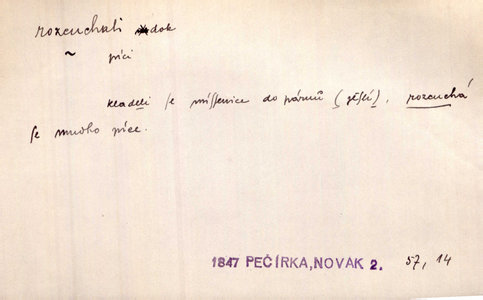 rozcuchati dok
~ píci
kladeli se míssenice do párnů (jeslí), rozcuchá
se mnoho píce.
1847 PEČÍRKA, NOVAK 2. 57, 14